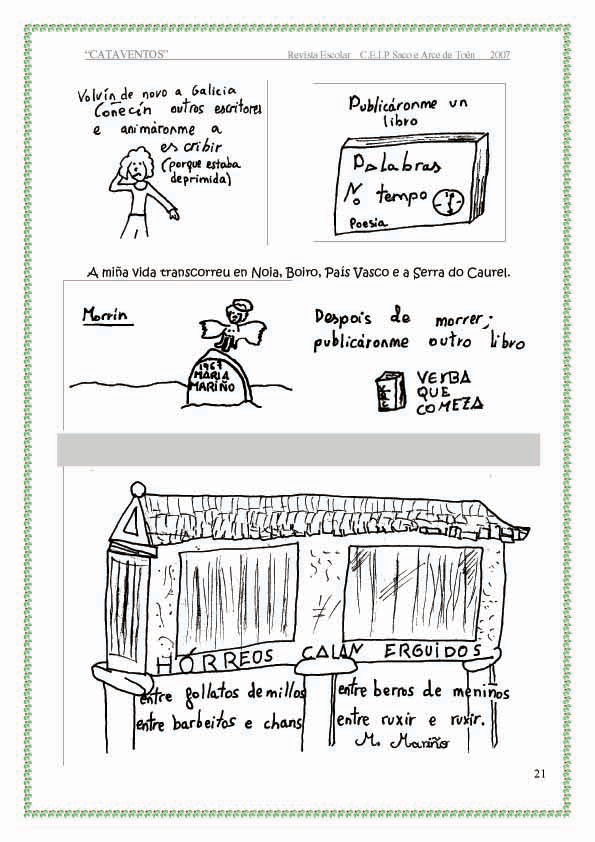 “CATAVENTOS” Revista Escolar C.E.I.P Saco e Arce de Toén 2007
Volvín de novo a Galicia
Coñecín outros escritores
e animáronme a
escribir
(porque estaba
deprimida)
Publicáronme un
libro
Palabras
No tempo
Poesia
A miña vida transcorreu en Noia, Boiro, País Vasco e a Serra do Caurel.
Morrín
1967
MARIA
MARIÑO
Despois de morrer;
publicáronme outro libro
VERBA
QUE
COMEZA
HÓRREOS CALAN ERGUIDOS
entre gollatos de millos
entre barbeitos e chans
entre berros de meniños
entre ruxir e ruxir.
M. Mariño
21